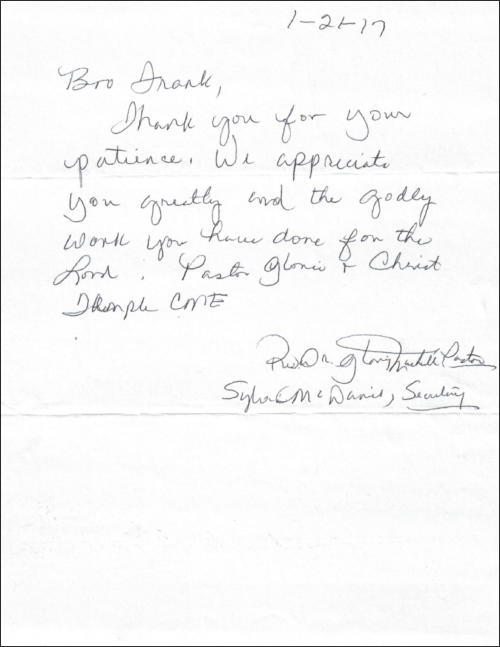 1-21-17
Bro Frank,
Thank you for your
patience. We appreciate
you greatly and the godly
work you have done for the
Lord. Pastor Gloria & Christ
Temple CME
Rev Dr. Gloria Pastor
McDaniel, Secretary